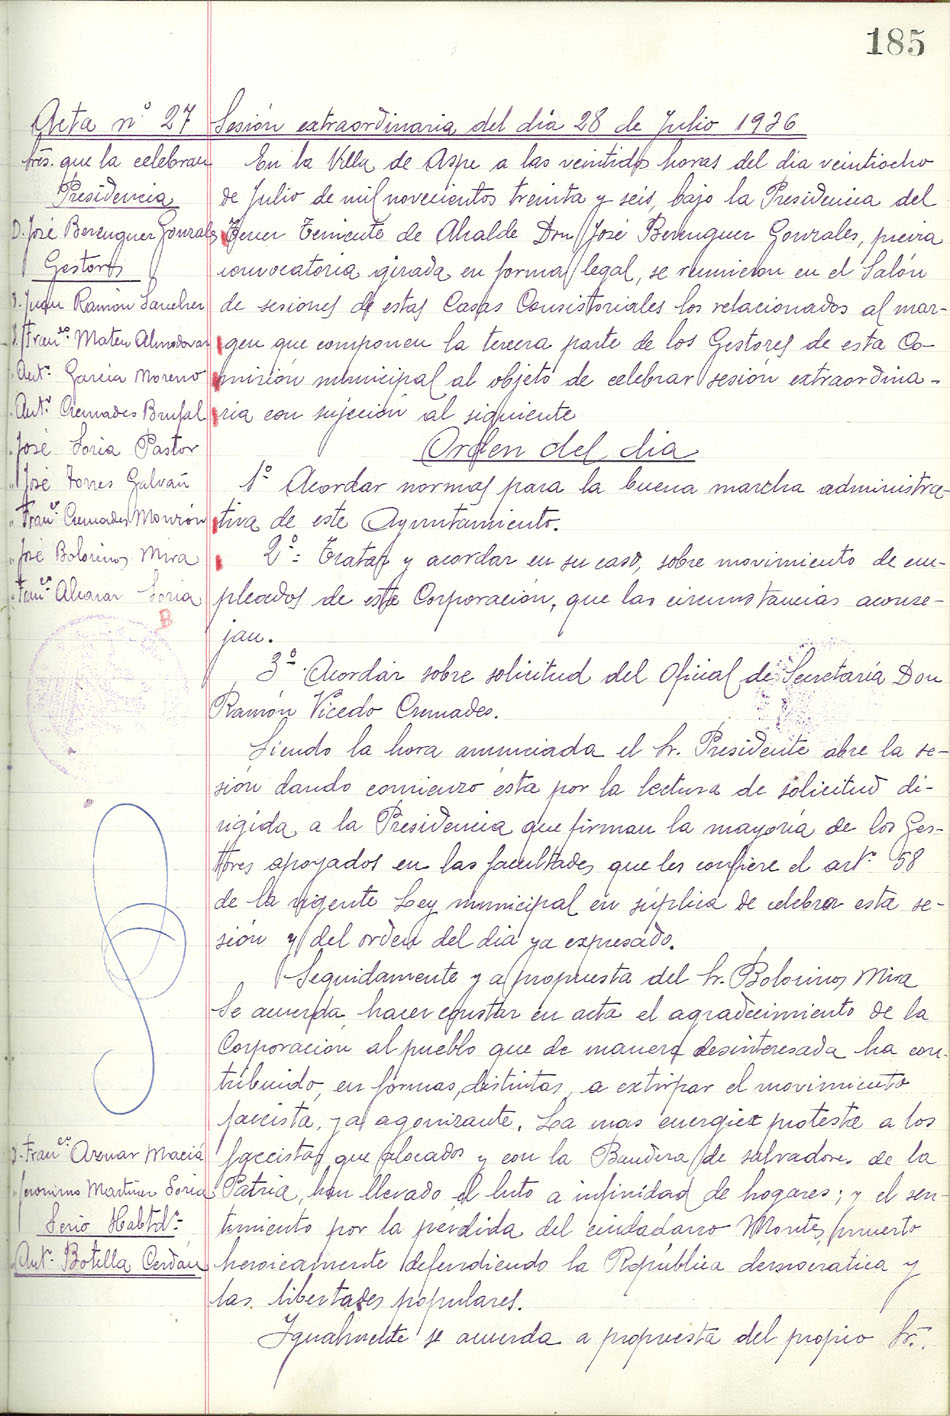 185
Acta nº 27
Sres. que la celebran
Presidencia
D. José Berenguer Gonzales
Gestores
D. Juan Ramón Sanchez
D. Franco. Mateu Almodovar
" Antº. Garcia Moreno
" Antº. Cremades Brufal
" José Soria Pastor
" José Torres Galvañ
" Franco. Cremades Monzón
" José Bolorinos Mira
" Franco. Alcaraz Soria
B
D. Franco. Aznar Maciá
" Jeronimo Martinez Soria
Serio Habtdº.
Antº. Botella Cerdán
Sesión extraordinaria del dia 28 de Julio 1936
En la Villa de Aspe a las veintidos horas del dia veintiocho
de Julio de mil novecientos treinta y seis, bajo la Presidencia del
Teniente de Alcalde Don José Berenguer Gonzales, previa
convocatoria girada en forma legal, se reunieron en el Salón
de sesiones de estas Casas Consistoriales los relacionados al mar-
gen que componen la tercera parte de los Gestores de esta Co-
misión municipal al objeto de celebrar sesión extraordina-
ria con sujeción al siguiente
Orden del dia
1º Acordar normas para la buena marcha administra-
tiva de este Ayuntamiento.
2º= Tratar y acordar en su caso, sobre movimiento de em-
pleados de esta Corporación, que las circunstancias aconse-
jan.
3º. Acordar sobre solicitud del Oficial de Secretaría Don
Ramón Vicedo Cremades.
Siendo la hora anunciada el Sr. Presidente abre la se-
sión dando comienzo ésta por la lectura de solicitud di-
rigida a la Presidencia que firman la mayoría de los Ges-
tores apoyados en las facultades que les confiere el artº. 58
de la vigente Ley municipal en súplica de celebrar esta se-
sión y del orden del dia ya expresado.
Seguidamente y a propuesta del Sr. Bolorinos Mira
se acuerda hacer constar en acta el agradecimiento de la
Corporacion al pueblo que de manera desinteresada ha con-
tribuido, en formas distintas, a extirpar el movimiento
faccista, ya agonizante. La mas energica protesta a los
faccistas que alocados y con la Bandera de salvadores de la
Patria, han llevado el luto a infinidad de hogares; y el sen-
timiento por la perdida del ciudadano Montes, muerto
heroicamente defendiendo la República democratica y
las libertades populares.
Igualmente se acuerda a propuesta del propio Sr.